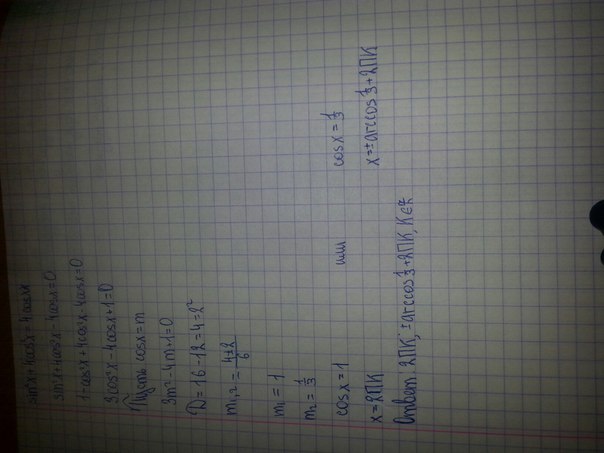 sin²x+4cos²x=4cosx
sin²x+4cos²x-4cosx=0
1-cos²x+4cos²x-4cosx=0
3cos²x-4cosx+1=0
Пусть cosx=m
3m²-4m+1=0
D=16-12=4=2²
m₁,₂=(4±2)/6
m₁=1
m₂=1/3
cosx=1 или cosx=1/3
x=2ПК x=±arccos1/3+2ПК
Ответ 2ПК; ±arccos1/3+2ПК, К∈Z